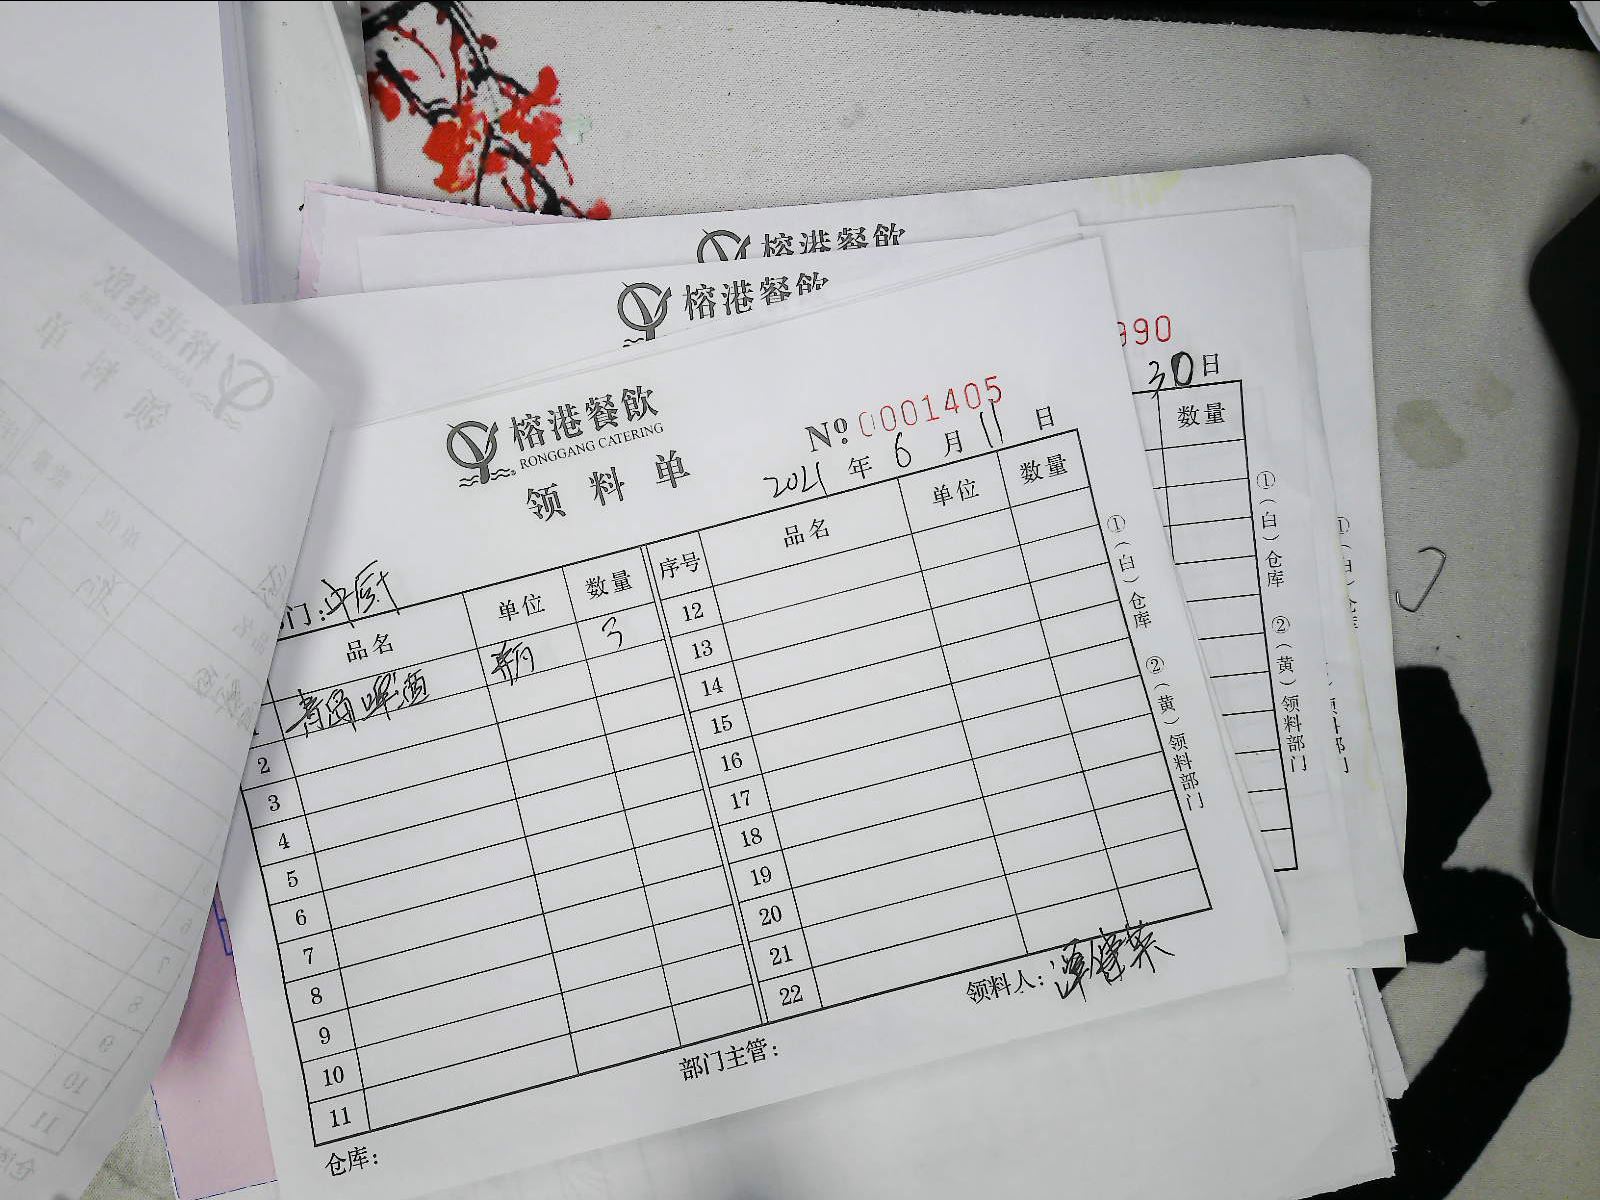 榕港餐飲
榕港餐飲
990
30日
榕港餐飲
RONGGANG CATERING
领料单
№ 0001405
2021年6月11日
门:中厨
品名 单位 数量 序号 品名 单位 数量
1 青岛啤酒 瓶 3
2
3
4
5
6
7
8
9
10
11
12
13
14
15
16
17
18
19
20
21
22
仓库:
部门主管:
领料人:
①(白)仓库 ②(黄)领料部门
数量
①(白)仓库 ②(黄)领料部门